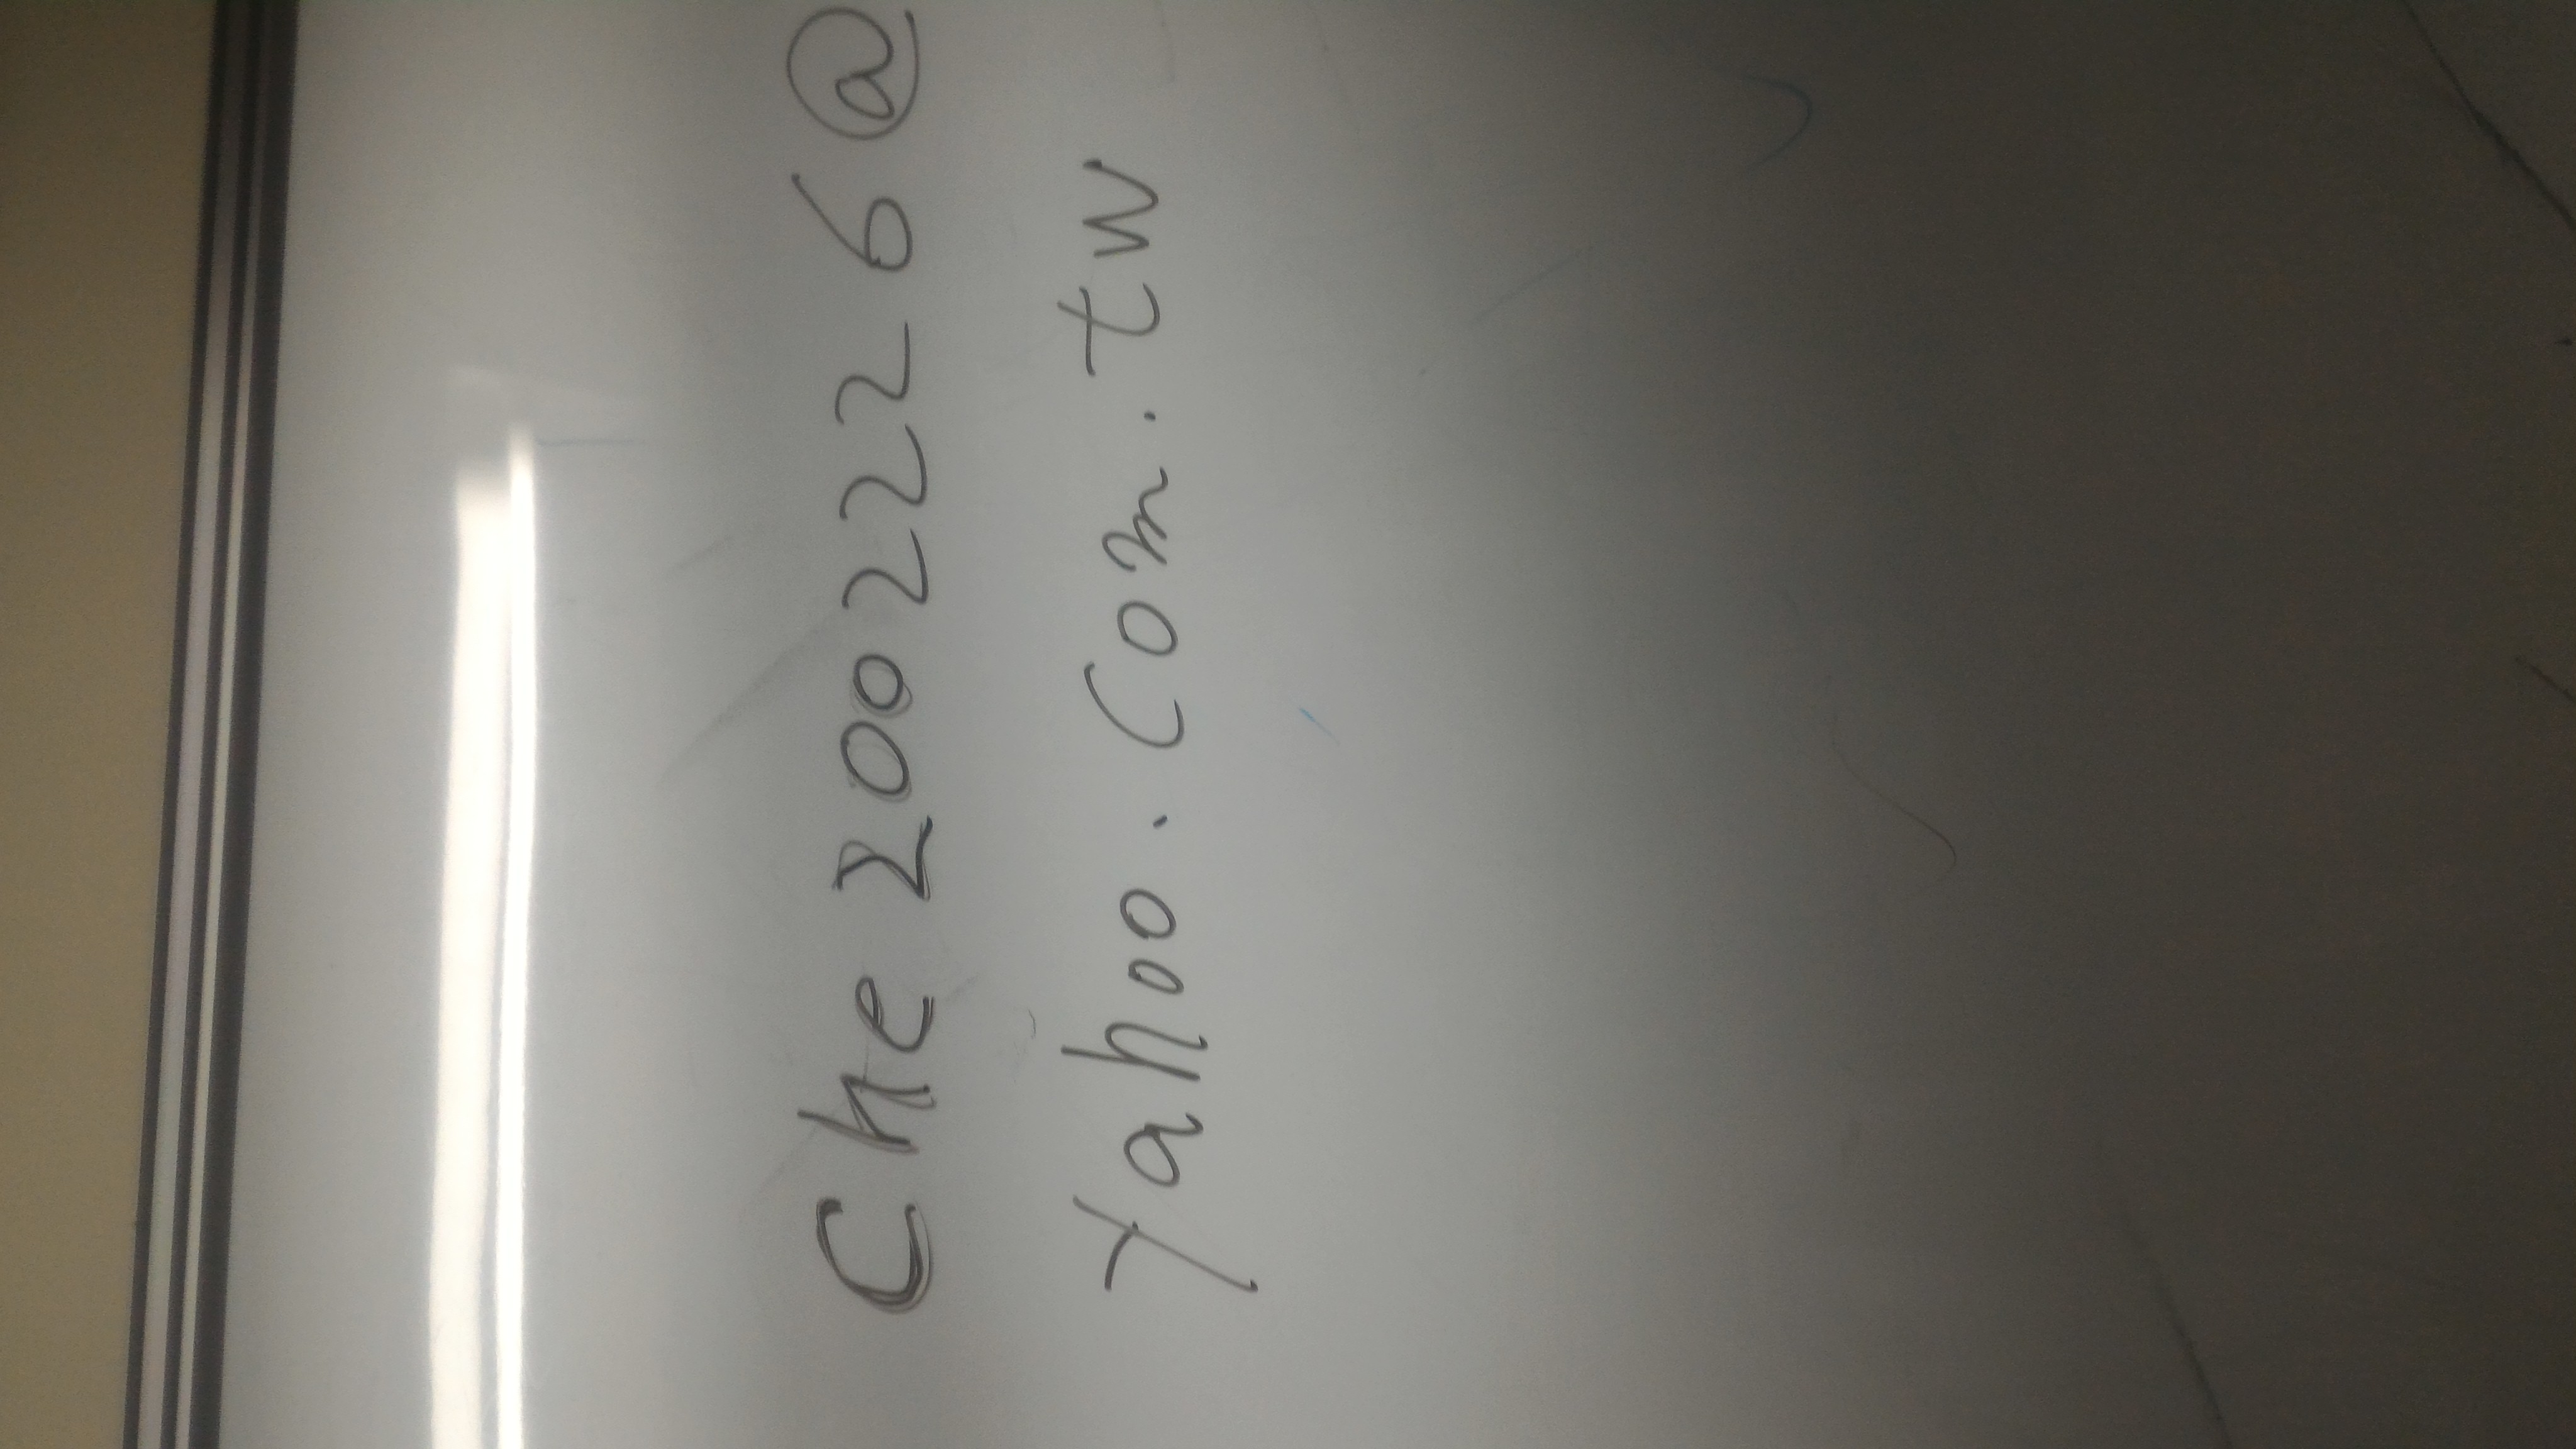 Che2002226@
Yahoo.com.tw